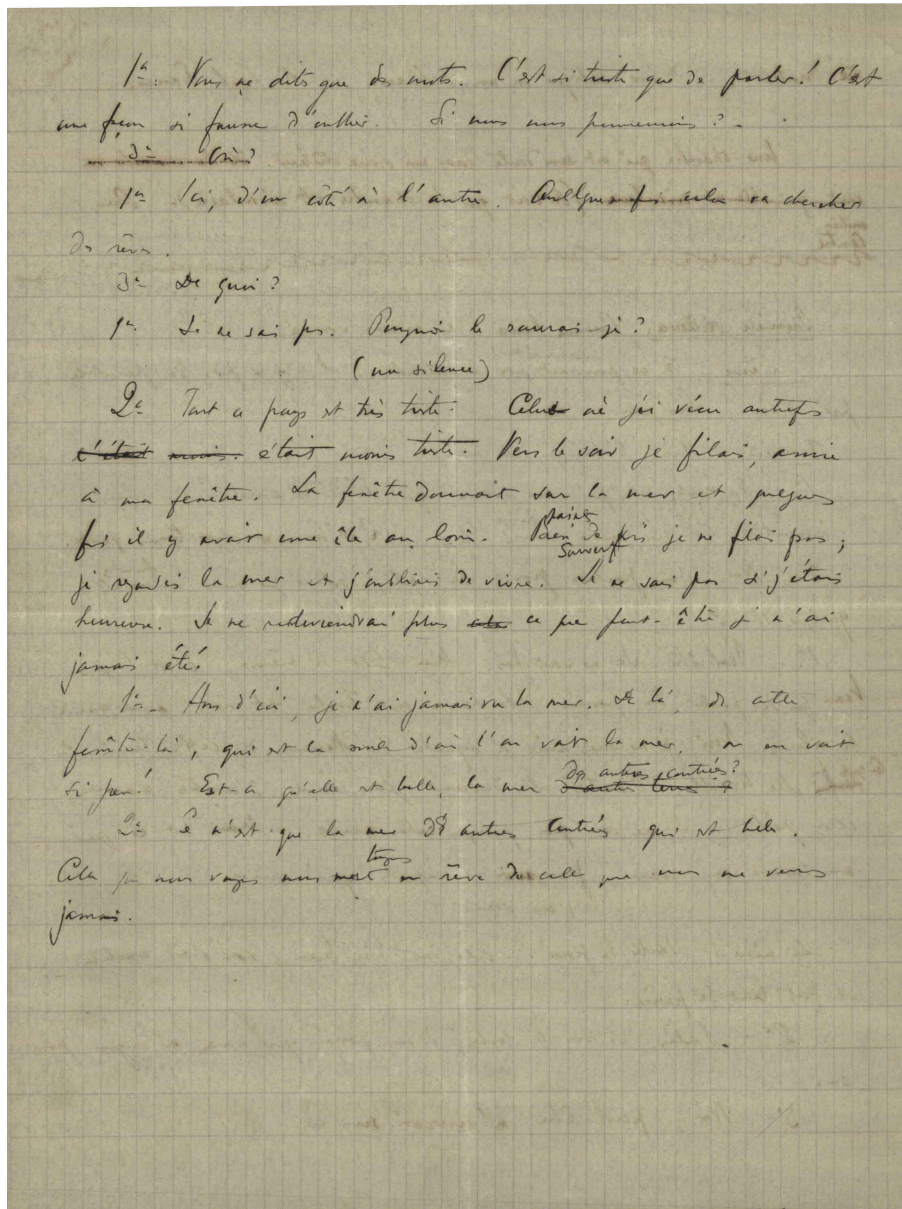 1ª. Vous ne dites que des mots. C'est si triste que de parler! C'est
une façon si fausse d'oublier. Si nous nous promenions?
3ª Où?
1ª Ici, d'un côté à l'autre. Quelquefois cela va chercher
des rêves.
3ª De quoi?
1ª. Je ne sais pas. Pourquoi le saurais-je?
(un silence)
2ª Tout ce pays est très triste. Celui où j'ai vécu autrefois
c'était moins. était moins triste. Vers le soir je filais, assise
à ma fenêtre. La fenêtre donnait sur la mer et quelques
fois il y avait une île au loin. Bien de fois je ne filais pas;
Souvent
je regardais la mer et j'oubliais de vivre. Je ne sais pas si j'étais
heureuse. Je ne redeviendrai plus ce que peut-être je n'ai
jamais été.
1ª. Hors d'ici, je n'ai jamais vu la mer. De là, de cette
fenêtre-là, qui est la seule d'où l'on voit la mer, on en voit
si peu! Est-ce qu'elle est belle, la mer des autres contrées?
d'autres terres?
2ª Ce n'est que la mer des autres contrées qui est belle.
Celle que nous voyons nous met toujours en rêve de celle que nous ne verrons
jamais.